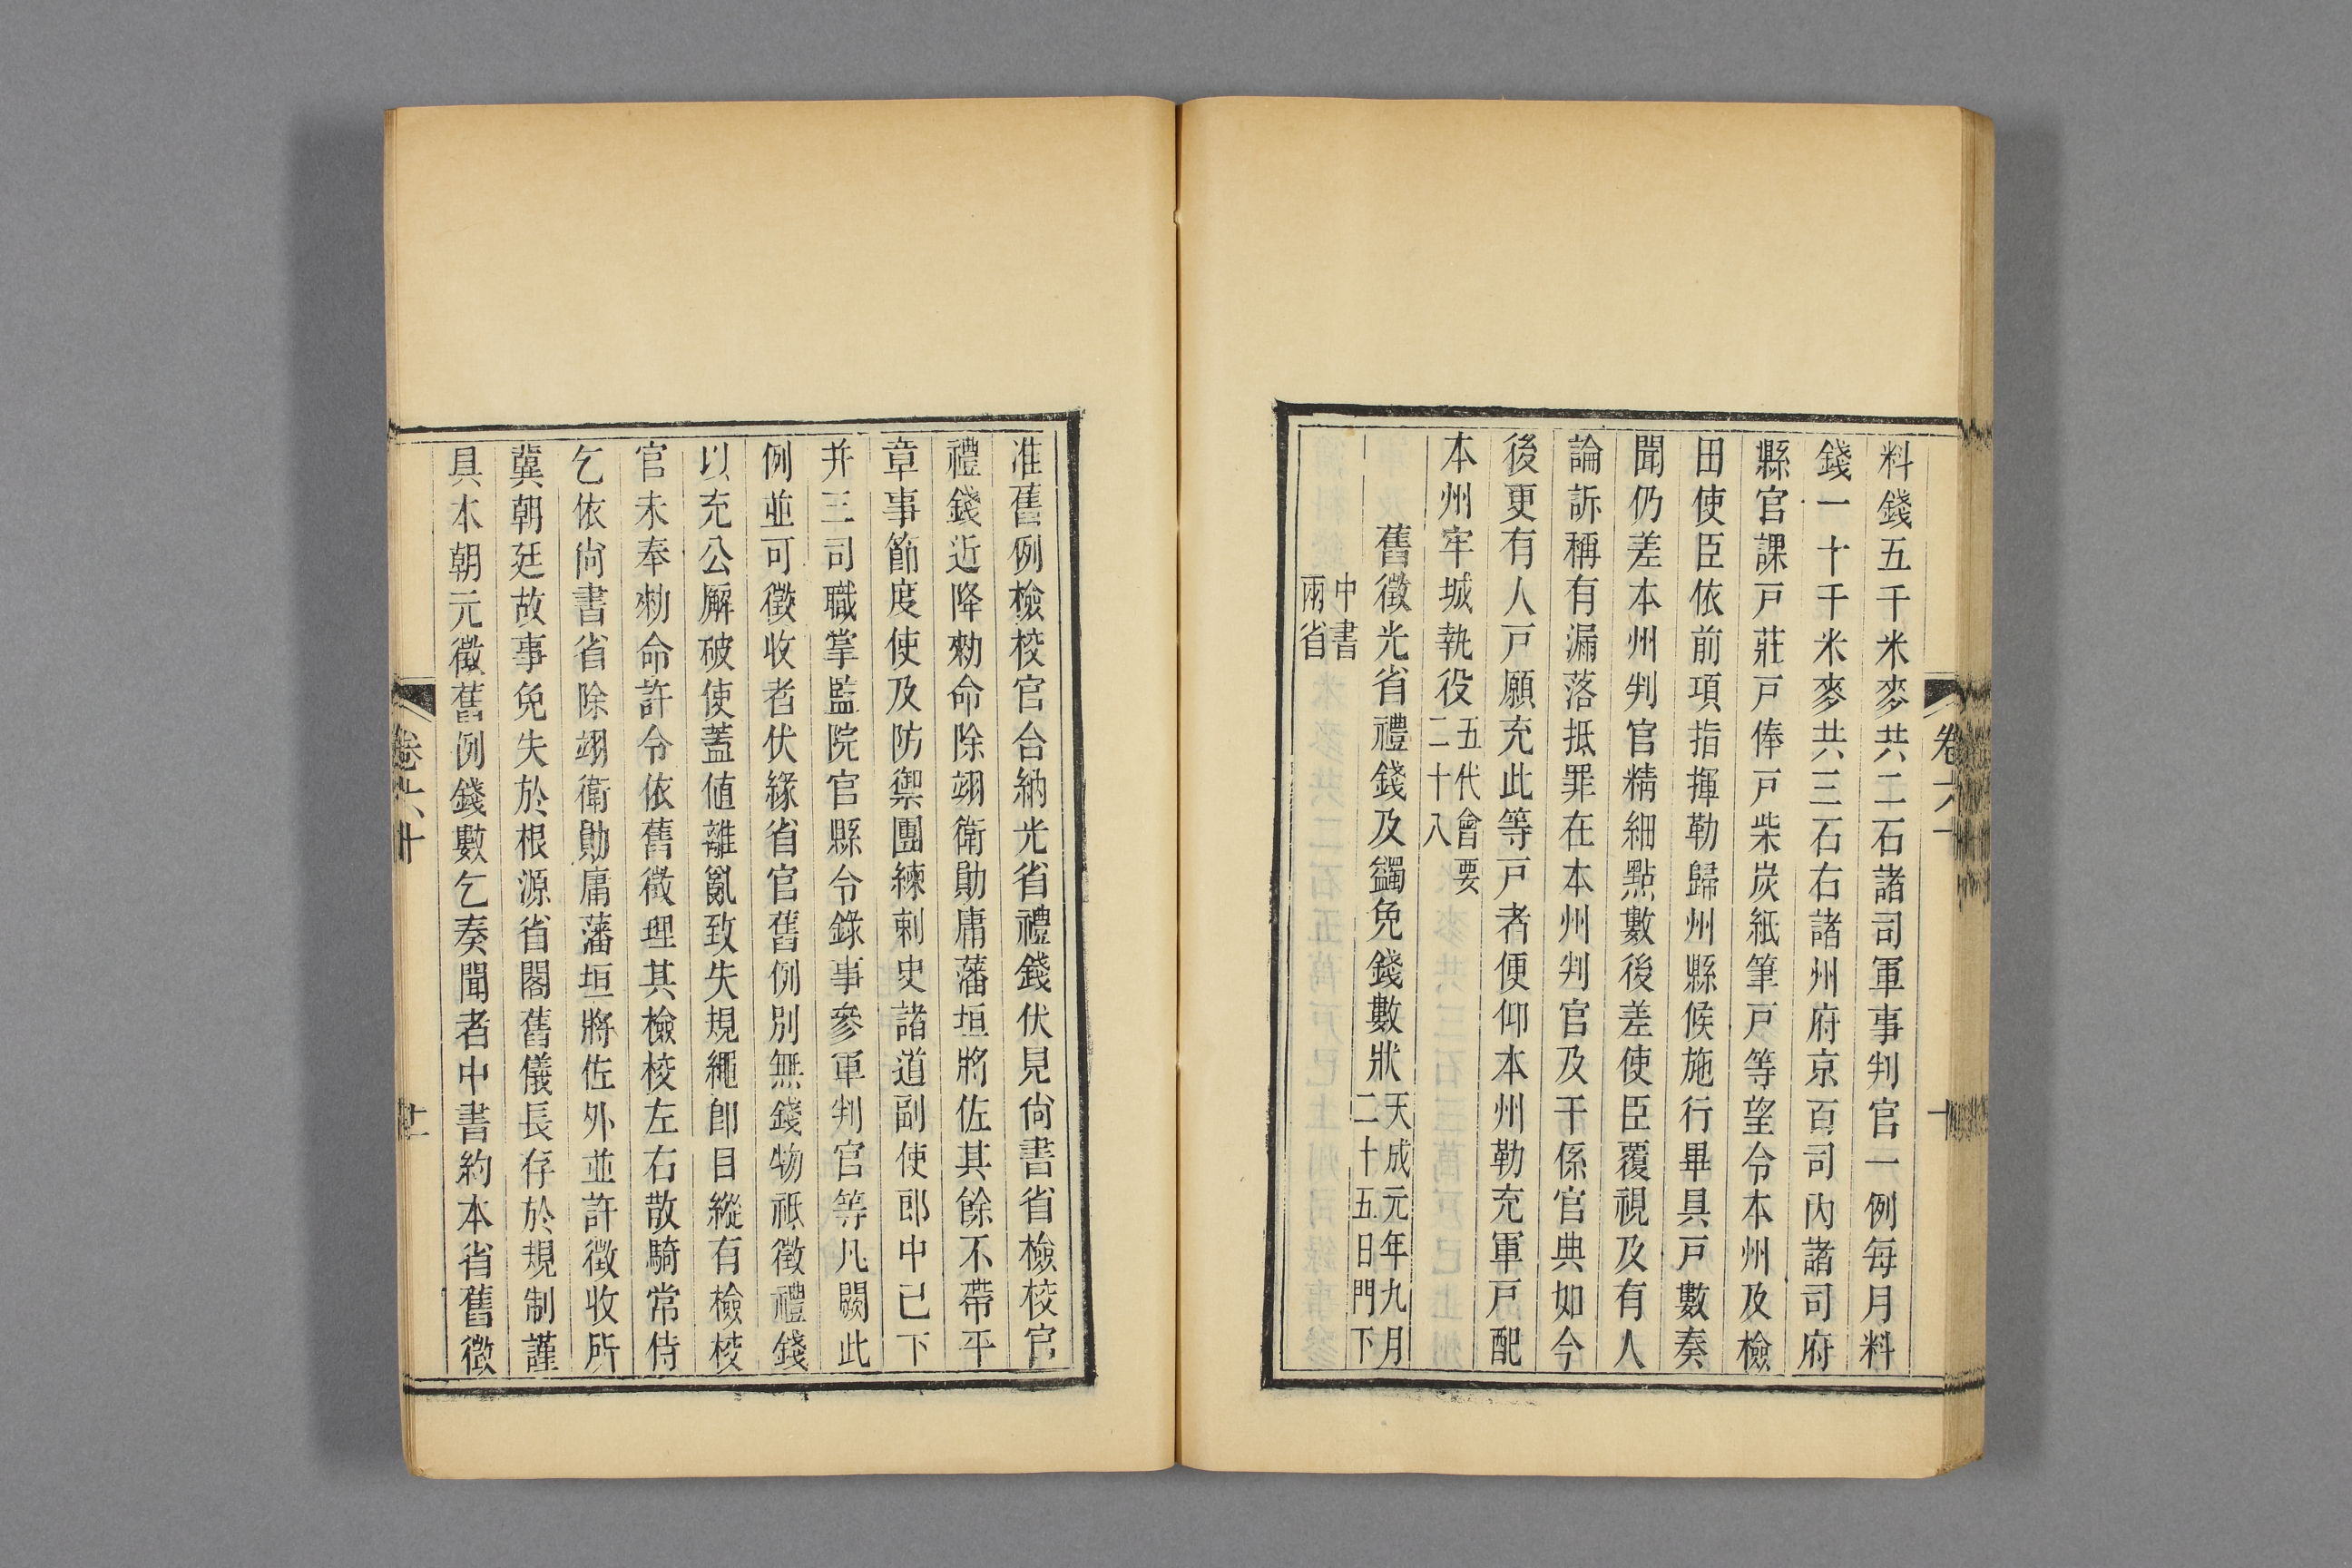 料錢五千米麥共二石諸司軍事判官一例每月料
錢一十千米麥共三石右諸州府京百司內諸司府
縣官課戶莊戶俸戶柴炭紙筆戶等望令本州及檢
田使臣依前項指揮勒歸州縣候施行畢具戶數奏
聞仍差本州判官精細點數後差使臣覆視及有人
論訴稱有漏落抵罪在本州判官及干係官典如今
後更有人戶願充此等戶者便仰本州勒充軍戶配
本州牢城執役五代會要二十八
舊徵光省禮錢及蠲免錢數狀天成元年九月二十五日門下
中書兩省
准舊例檢校官合納光省禮錢伏見尙書省檢校官
禮錢近降勑命除翊衛勛庸藩垣將佐其餘不帶平
章事節度使及防禦團練剌史諸道副使郎中已下
并三司職掌監院官縣令錄事參軍判官等凡闕此
例並可徵收者伏緣省官舊例別無錢物祗徵禮錢
以充公廨破使蓋値離亂致失規繩卽目縱有檢校
官未奉勑命許令依舊徵理其檢校左右散騎常侍
乞依尙書省除翊衛勛庸藩垣將佐外並許徵收所
冀朝廷故事免失於根源省閣舊儀長存於規制謹
具本朝元徵舊例錢數乞奏聞者中書約本省舊徵